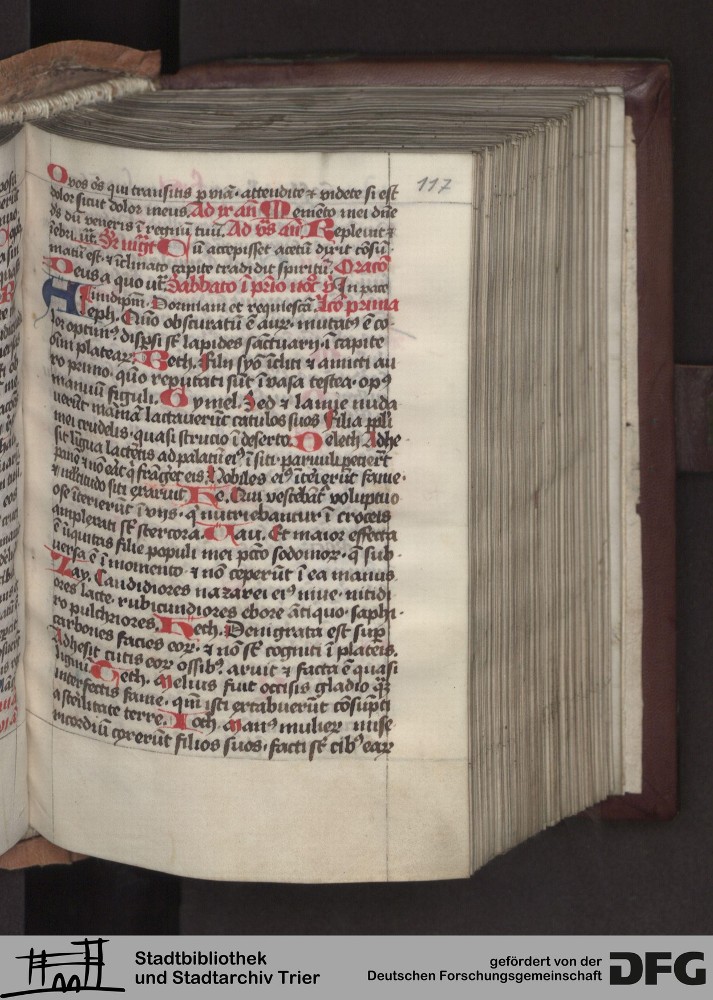 117
O vos oēs qui transitis p viā · attendite ⁊ videte si est
dolor sicut dolor meus. Ad īr an̄ Memēto mei dn̄e
ds̄ dū veneris ī regnū tuū. Ad vs̄ an̄. Replevit ⁊
inebri. ut
Cū accepisset acetū dixit cōsū
matū est · ⁊ īclinato capite tradidit spiritū. Oracō
Deus a quo ut. Sabbato ī prīo noc̄ p̄ In pace
in idipm̄. Dormiam et requiescā. Lcō prima
Aleph. Quō obscuratū ē aur · mutatꝰ ē co
lor optimꝰ disp̄si st̄ lapides sactuarij · ī capite
oīm platear. Beth. Filij syō īcliti ⁊ amicti au
ro primo · quō reputati sūt ī vasa testea · opꝰ
manuū figuli. Gymel. Sed ⁊ lamie nuda
verūt māmā lactaverūt catulos suos Filia ppl̄i
mei crudelis · quasi strucio ī deserto. Delech Adhe
sit līgua lactētis ad palatū eiꝰ ī siti · parvuli petierūt
panē ⁊ nō erat q̇ frāget eis
ose īterierūt ī vijs · q̇ nutriebantur ī croceis
amplexati st̄ stercora. Vau. Et maior effecta
ē īiquitas filie populi mei pctō sodomor · q̄ sub ·
versa ē ī momento · ⁊ nō ceperūt ī ea manus
Zay. Candidiores nazarei eiꝰ nive · nitidi
ores lacte · rubicundiores ebore ātiquo · saphi ·
ro pulchriores. Heth. Denigrata est sup
carbones facies eor · ⁊ nō st̄ cogniti ī plateis.
Adhesit cutis eor ossibꝰ · aruit ⁊ facta ē quasi
lignū Teth. Melius fuit occisis gladio q̄ꝫ
interfectis fame · qm̄ isti extabuerūt cōsūpti
a sterilitate terre. Ioth. Manꝰ mulier mise
ricordiū coxerūt filios suos · facti st̄ cibꝰ ear
Stadtbibliothek
und Stadtarchiv Trier
gefördert von der
Deutschen Forschungsgemeinschaft
DFG